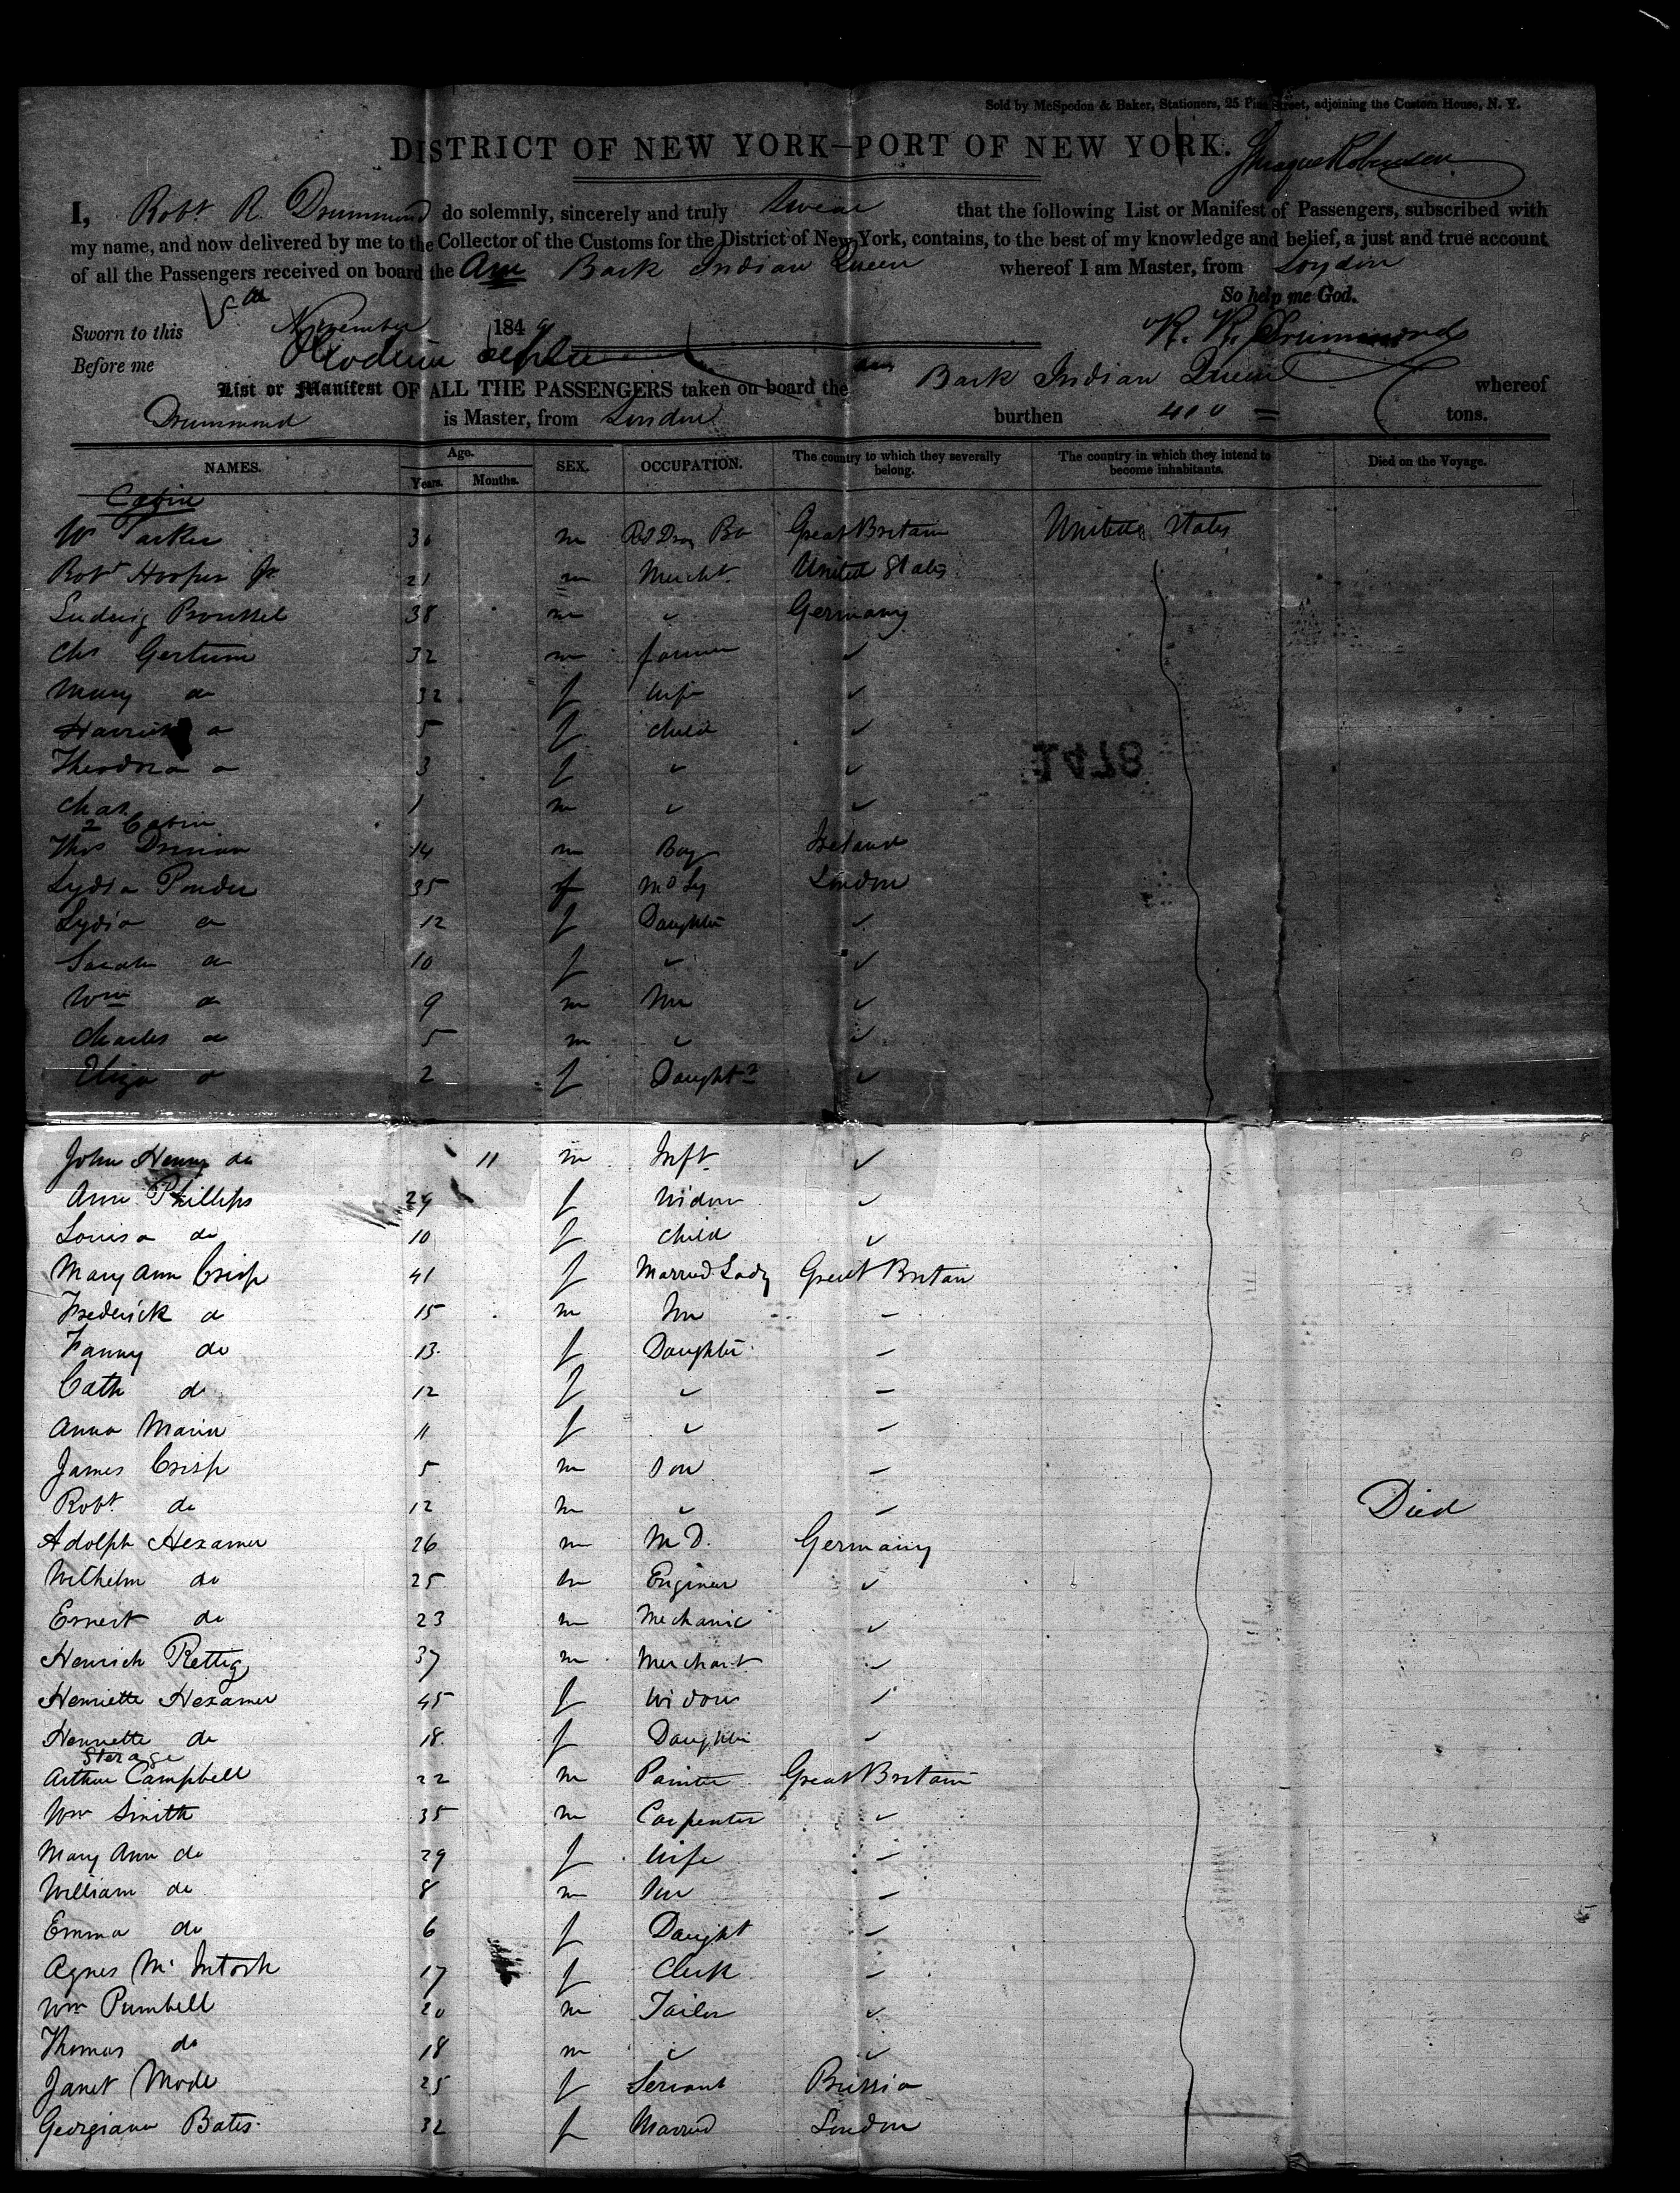 Sold by McSpedon & Baker, Stationers, 25 Pine Street, adjoining the Custom House, N. Y.
DISTRICT OF NEW YORK—PORT OF NEW YORK.
I, Robt R. Drummond do solemnly, sincerely and truly swear that the following List or Manifest of Passengers, subscribed with
my name, and now delivered by me to the Collector of the Customs for the District of New York, contains, to the best of my knowledge and belief, a just and true account
of all the Passengers received on board the Am Bark Indian Queen whereof I am Master, from London
So help me God.
Sworn to this 5th November 1849
R. R. Drummond
Before me
List or Manifest OF ALL THE PASSENGERS taken on board the Am Bark Indian Queen whereof
Drummond is Master, from London burthen 400 tons.
NAMES. Age. Years. Months. SEX. OCCUPATION. The country to which they severally belong. The country in which they intend to become inhabitants. Died on the Voyage.
Cabin
W Parker 36 m Great Britain United States
Robt Hooper Jr 21 m Mercht United States
Ludwig 38 m ✓ Germany
Chs Gertum 32 m farmer ✓
Mary do 32 f wife ✓
Harriet do 5 f child ✓
Theodora do 3 f ✓ ✓
Chas 1 m ✓ ✓
2 Cabin
Thos 14 m Boy Ireland
Lydia Ponder 35 f London
Lydia do 12 f Daughter ✓
Sarah do 10 f ✓ ✓
Wm do 9 m Son ✓
Charles do 5 m ✓ ✓
Eliza do 2 f Daughtr ✓
1478
John Henry do 11 m Inft ✓
Ann Phillips 29 f Widow ✓
Louisa do 10 f child ✓
Mary Ann Crisp 41 f Married Lady Great Britain
Frederick do 15 m Son –
Fanny do 13 f Daughter –
Cath do 12 f ✓ –
Anna Maria 11 f ✓ –
James Crisp 5 m Son –
Robt do 12 m ✓ – Died
Adolph Hexamer 26 m M D. Germany
Wilhelm do 25 m Engineer ✓
Ernest do 23 m Mechanic ✓
Henrich Rettig 37 m Merchant ✓
Henriette Hexamer 45 f Widow ✓
Henriette do 18 f Daughter ✓
Sterage
Arthur Campbell 22 m Painter Great Britain
Wm Smith 35 m Carpenter ✓
Mary Ann do 29 f Wife –
William do 8 m Son –
Emma do 6 f Daught –
Agnes Mc Intosh 17 f Clerk –
Wm Pumbell 20 m Tailor ✓
Thomas do 18 m ✓ ✓
Janet Mode 25 f Servant
Georgiana Bates 32 f Married London